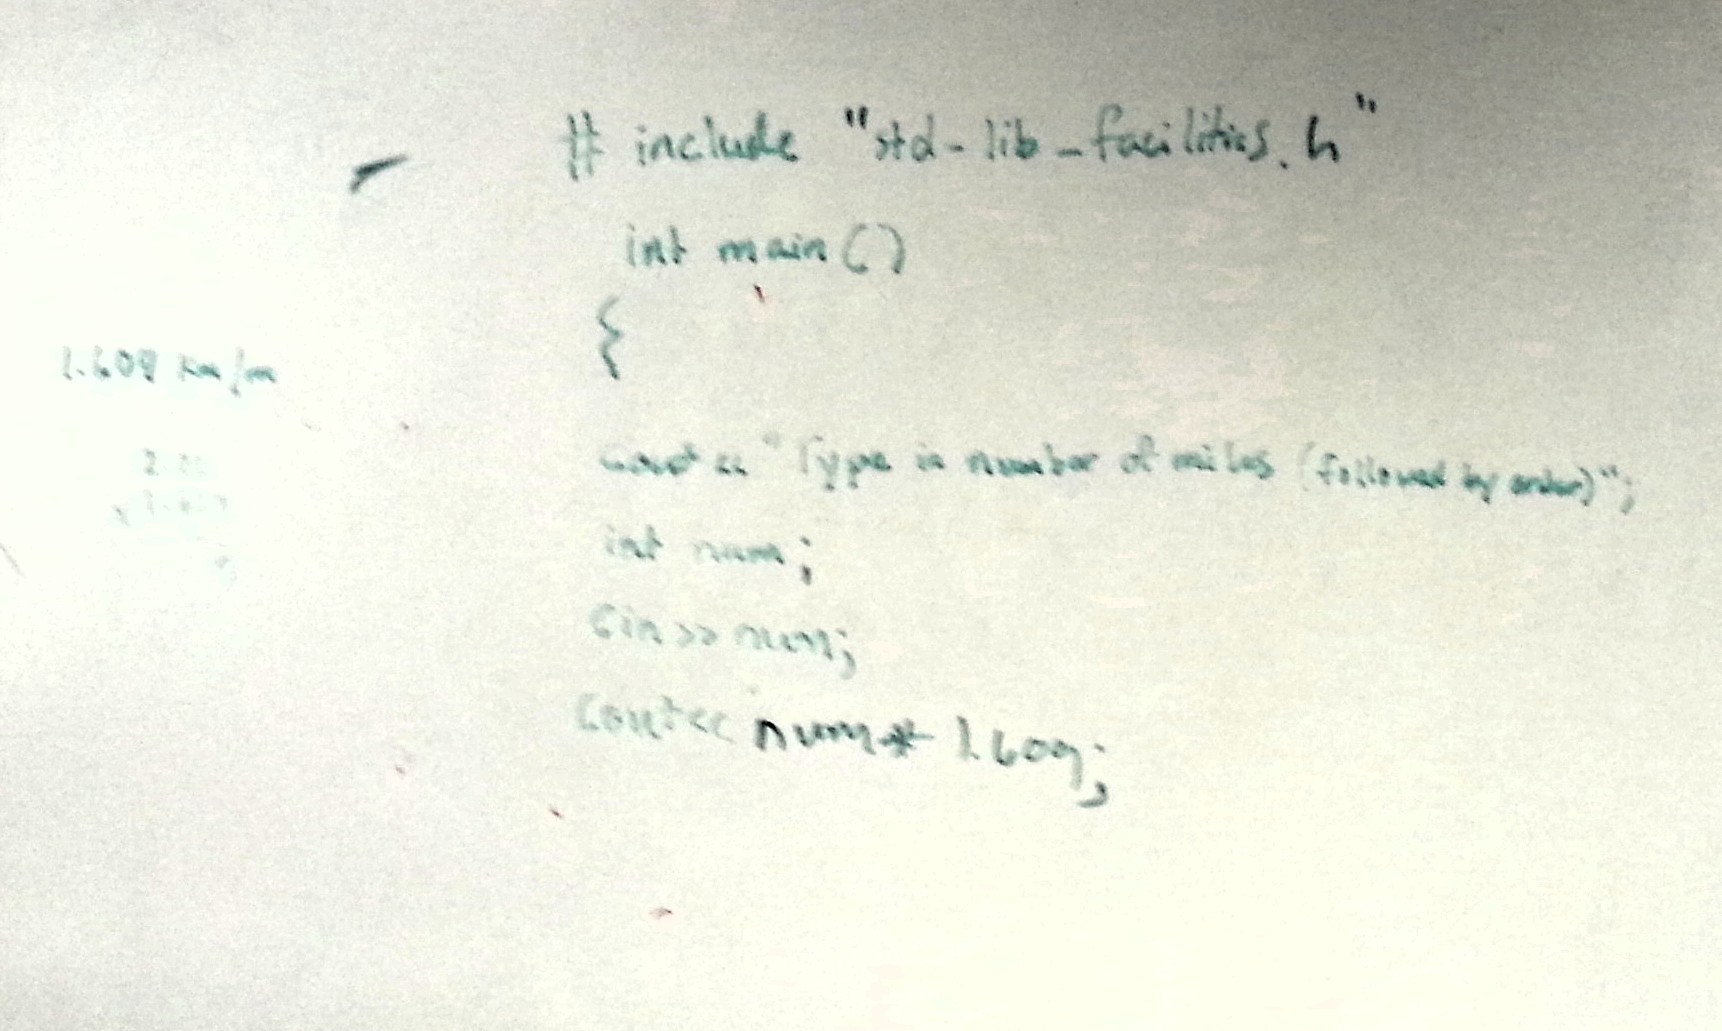 # include "std_lib_facilities.h"
int main()
{
1.609 km/m
cout << "Type in number of miles (followed by enter)";
int num;
cin >> num;
cout << num * 1.609;